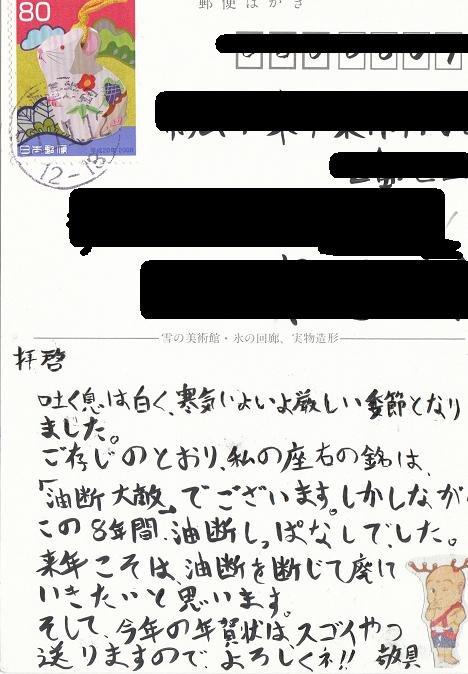 郵便はがき
80
日本郵便
平成20年 2008
12-18
雪の美術館・氷の回廊、実物造形
拝啓
吐く息は白く、寒気いよいよ厳しい季節となり
ました。
ご存じのとおり、私の座右の銘は、
「油断大敵」でございます。しかしなが
この8年間、油断しっぱなしでした。
来年こそは、油断を断じて廃に
いきたいと思います。
そして、今年の年賀状は、スゴイやつ
送りますので、よろしくネ!! 敬具